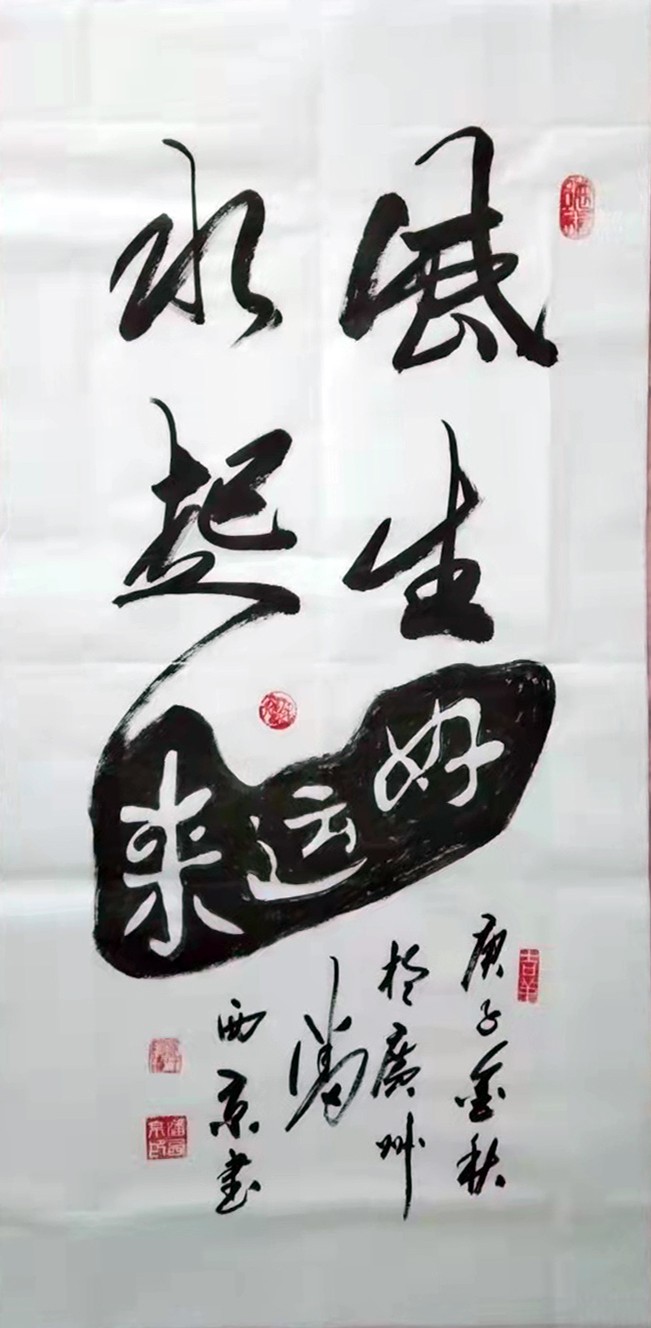 风生
水起
好运来
庚子金秋
於廣州
潘
西京书